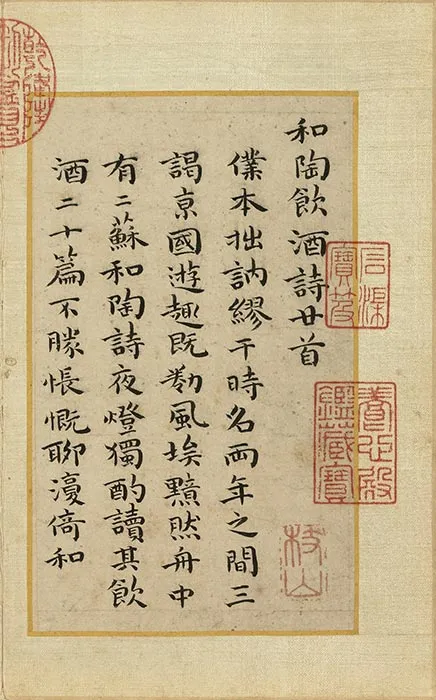 和陶飲酒詩廿首
僕本拙訥繆干時名兩年之間三
謁京國遊趣既尠風埃黯然舟中
有二蘇和陶詩夜燈獨酌讀其飲
酒二十篇不勝悵慨聊濅倚和
養心殿鑑藏寶
枝山